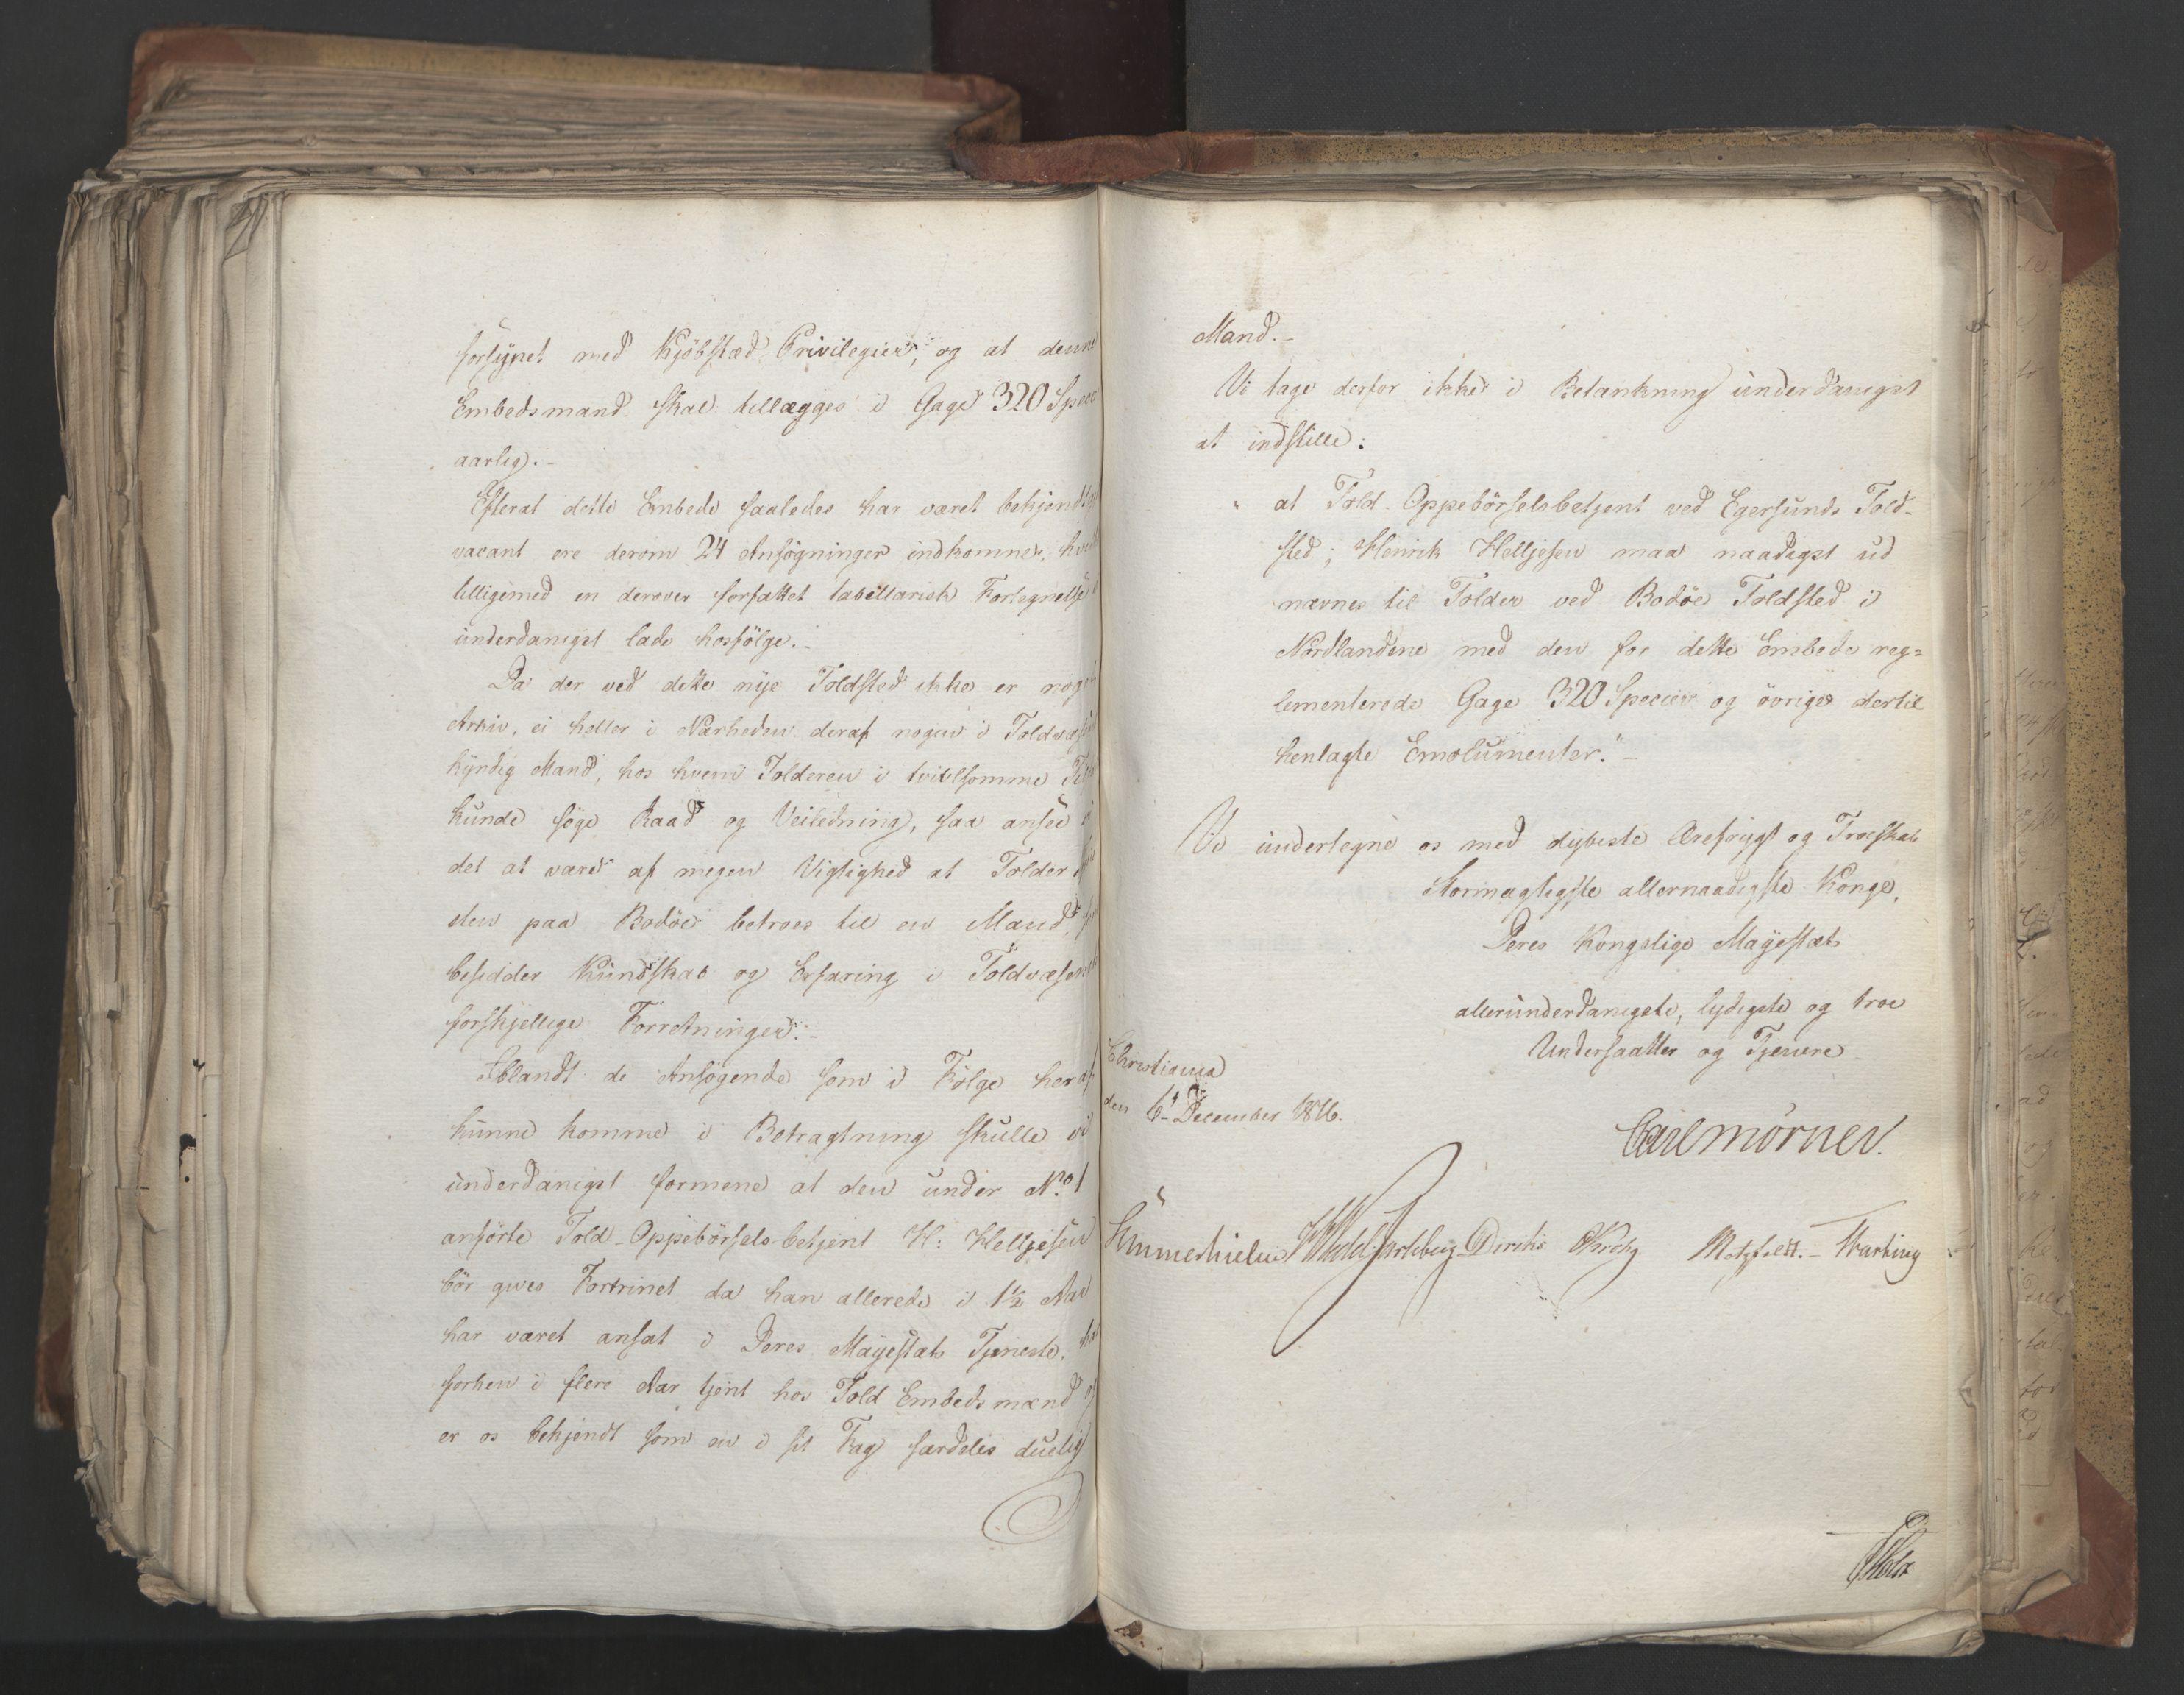 forsynet med Kjöbstæd Privilegier, og at denne
Embedsmand skal tillægges i Gage 320 Specier
aarlig.-
Efterat dette Embede saaledes har været bekjendtgjort
vacant ere derom 24 Ansögninger indkomne,
tilligemed en derover forfattet tabellarisk Fortegnelse
underdanigst lade hosfölge.-
Da der ved dette nye Toldsted ikke er nogen
Arkiv, ei heller i Nærheden deraf nogen i Toldvæsenet
kyndig Mand, hos hvem Tolderen i tvivlsomme
kunde söge Raad og Veiledning, saa ansee vi
det at være af megen Vigtighed at Tolder
den paa Bodöe betroes til en Mand,
besidder Kundskab og Erfaring i Toldvæsenets
forskjellige Forretninger.-
Iblandt de Ansögende som i Fölge heraf
kunne komme i Betragtning skulle vi
underdanigst formene at den under No. 1
anförte Told-Oppebörsels-betjent H: Helljesen
bör gives Fortrinet da han allerede i 1½ Aar
har været ansat i Deres Majestæts Tjeneste, har
forhen i flere Aar tjent hos Told Embedsmænd og
er os bekjendt som en i sit Fag særdeles duelig
Mand.-
Vi tage derfor ikke i Betænkning underdanigst
at indstille:
" at Told-Oppebörselsbetjent ved Egersunds Told-
sted, Henrik Helljesen maa naadigst ud
nævnes til Tolder ved Bodöe Toldsted i
Nordlandene med den for dette Embede reg=
lementerede Gage 320 Specier og övrige dertil
henlagte Emolumenter."-
Vi undertegne os med dybeste Ærefrygt og Troeskab
Stormægtigste allernaadigste Konge,
Deres Kongelige Majestæts
allerunderdanigste, lydigste og troe
Undersaatter og Tjenere
Christiania
den 6t December 1816.
Carl Mörner.
Sommerhielm Wedel Jarlsberg Diriks Krog Motzfeldt.- Tharing
Holst